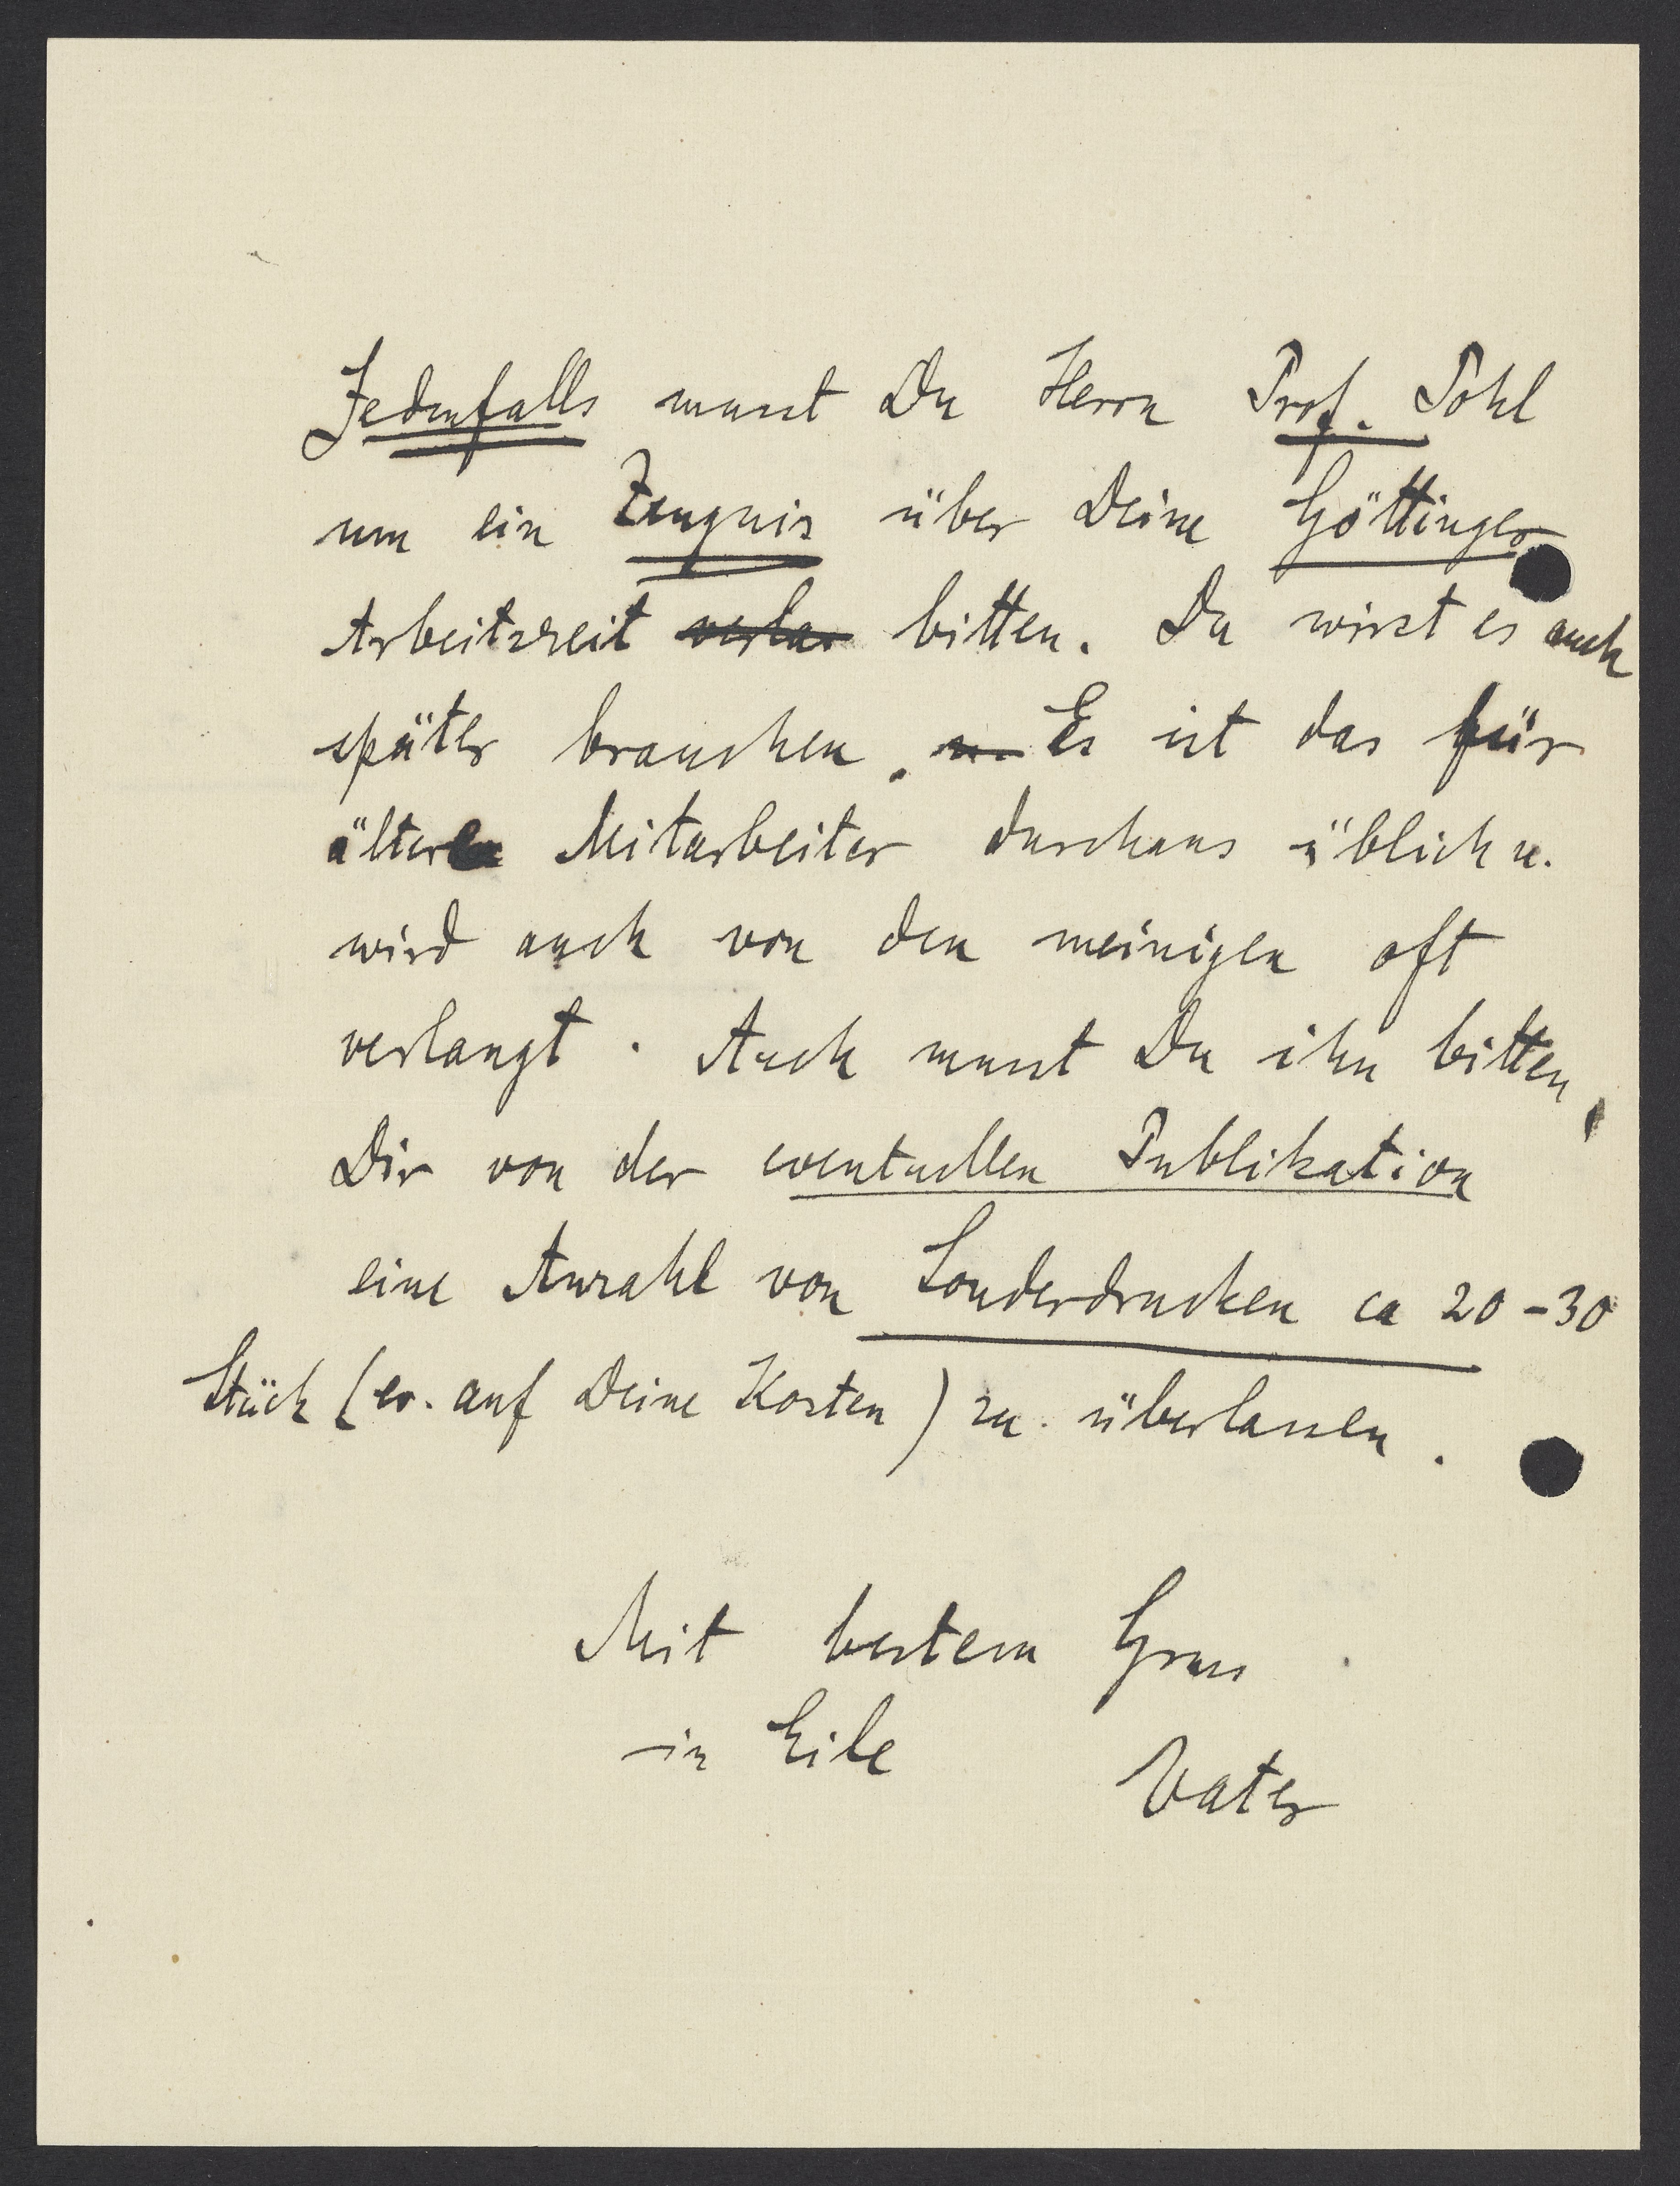 Jedenfalls musst Du Herrn Prof. Pohl
um ein Zeugnis über Deine Göttinger
Arbeitszeit verlan bitten. Du wirst es auch
später brauchen. u. Es ist das für
ältere Mitarbeiter durchaus üblich u.
wird auch von den meinigen oft
verlangt. Auch musst Du ihn bitten,
Dir von der eventuellen Publikation
eine Anzahl von Sonderdrucken ca 20-30
Stück (ev. auf Deine Kosten) zu überlassen.
Mit bestem Gruss
in Eile
Vater